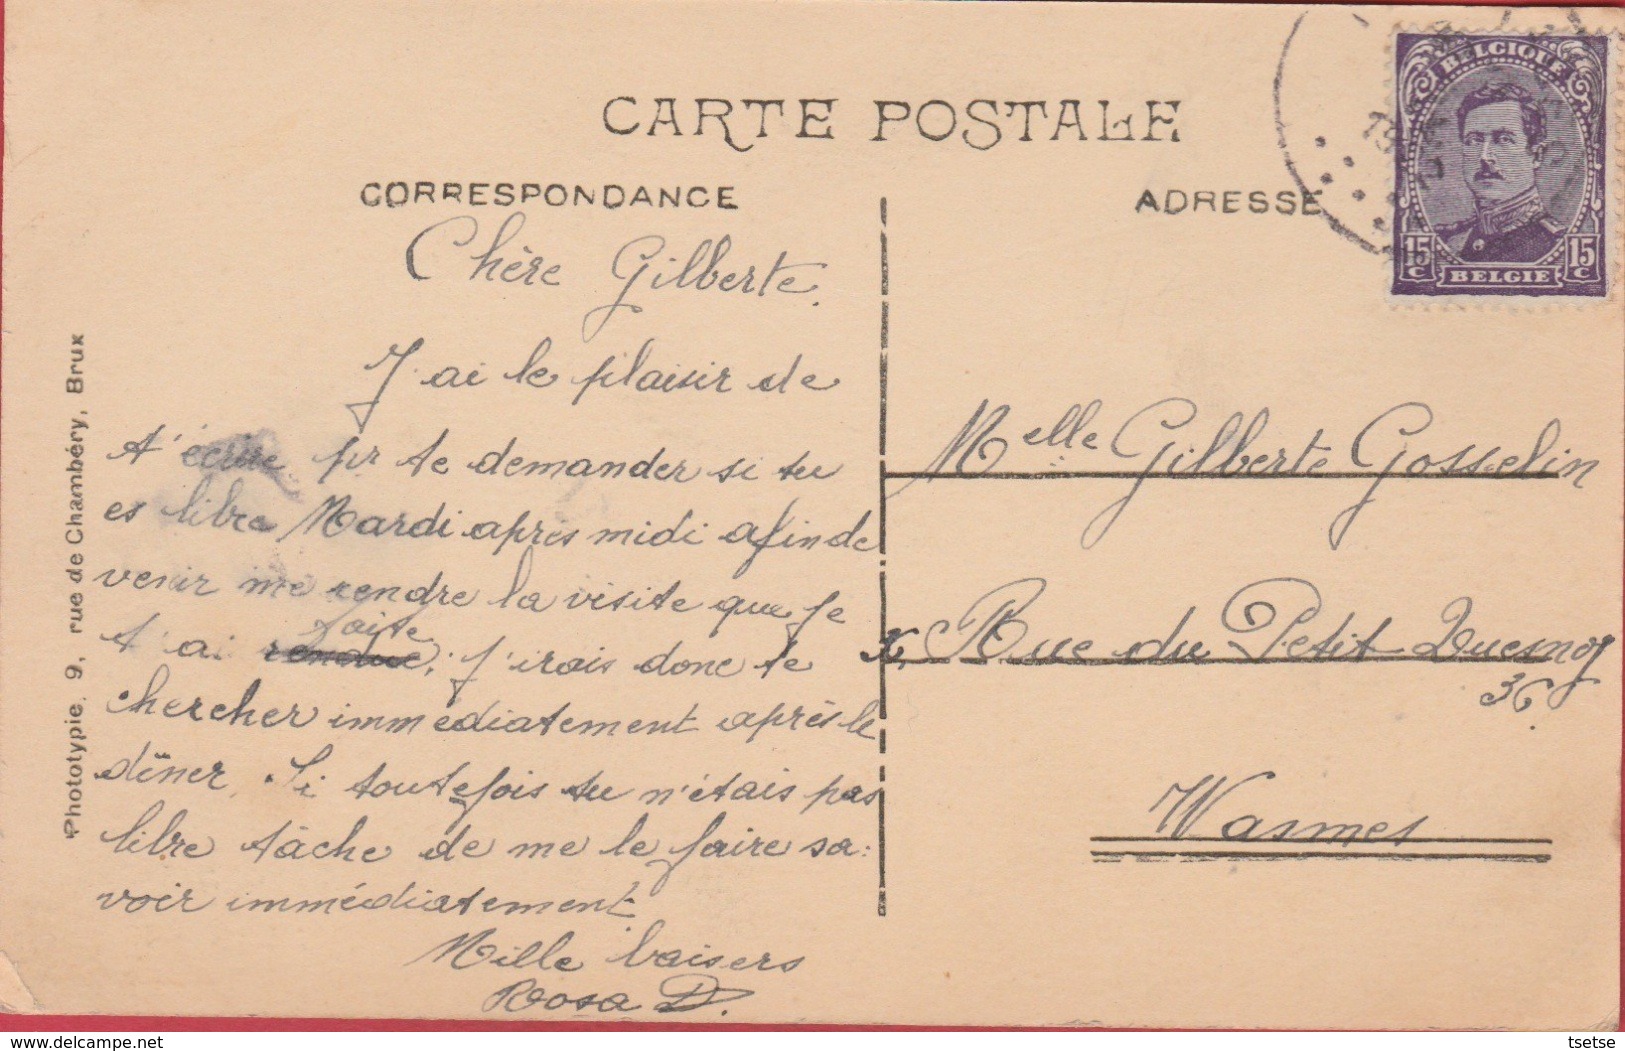 CARTE POSTALE
CORRESPONDANCE
ADRESSE
BELGIQUE
15 C
15 C
BELGIE
Chère Gilberte.
J'ai le plaisir de
t'écrire pr te demander si tu
es libre Mardi après midi afin de
venir me rendre la visite que je
faite
t'ai rendue; j'irais donc te
chercher immediatement après le
dîner. Si toutefois tu n'étais pas
libre tâche de me le faire sa-
voir immédiatement
Mille baisers
Rosa D.
Melle Gilberte Gosselin
Rue du Petit Quesnoy
36
Wasmes
Phototypie, 9, rue de Chambéry, Brux
delcampe.net
tsetse